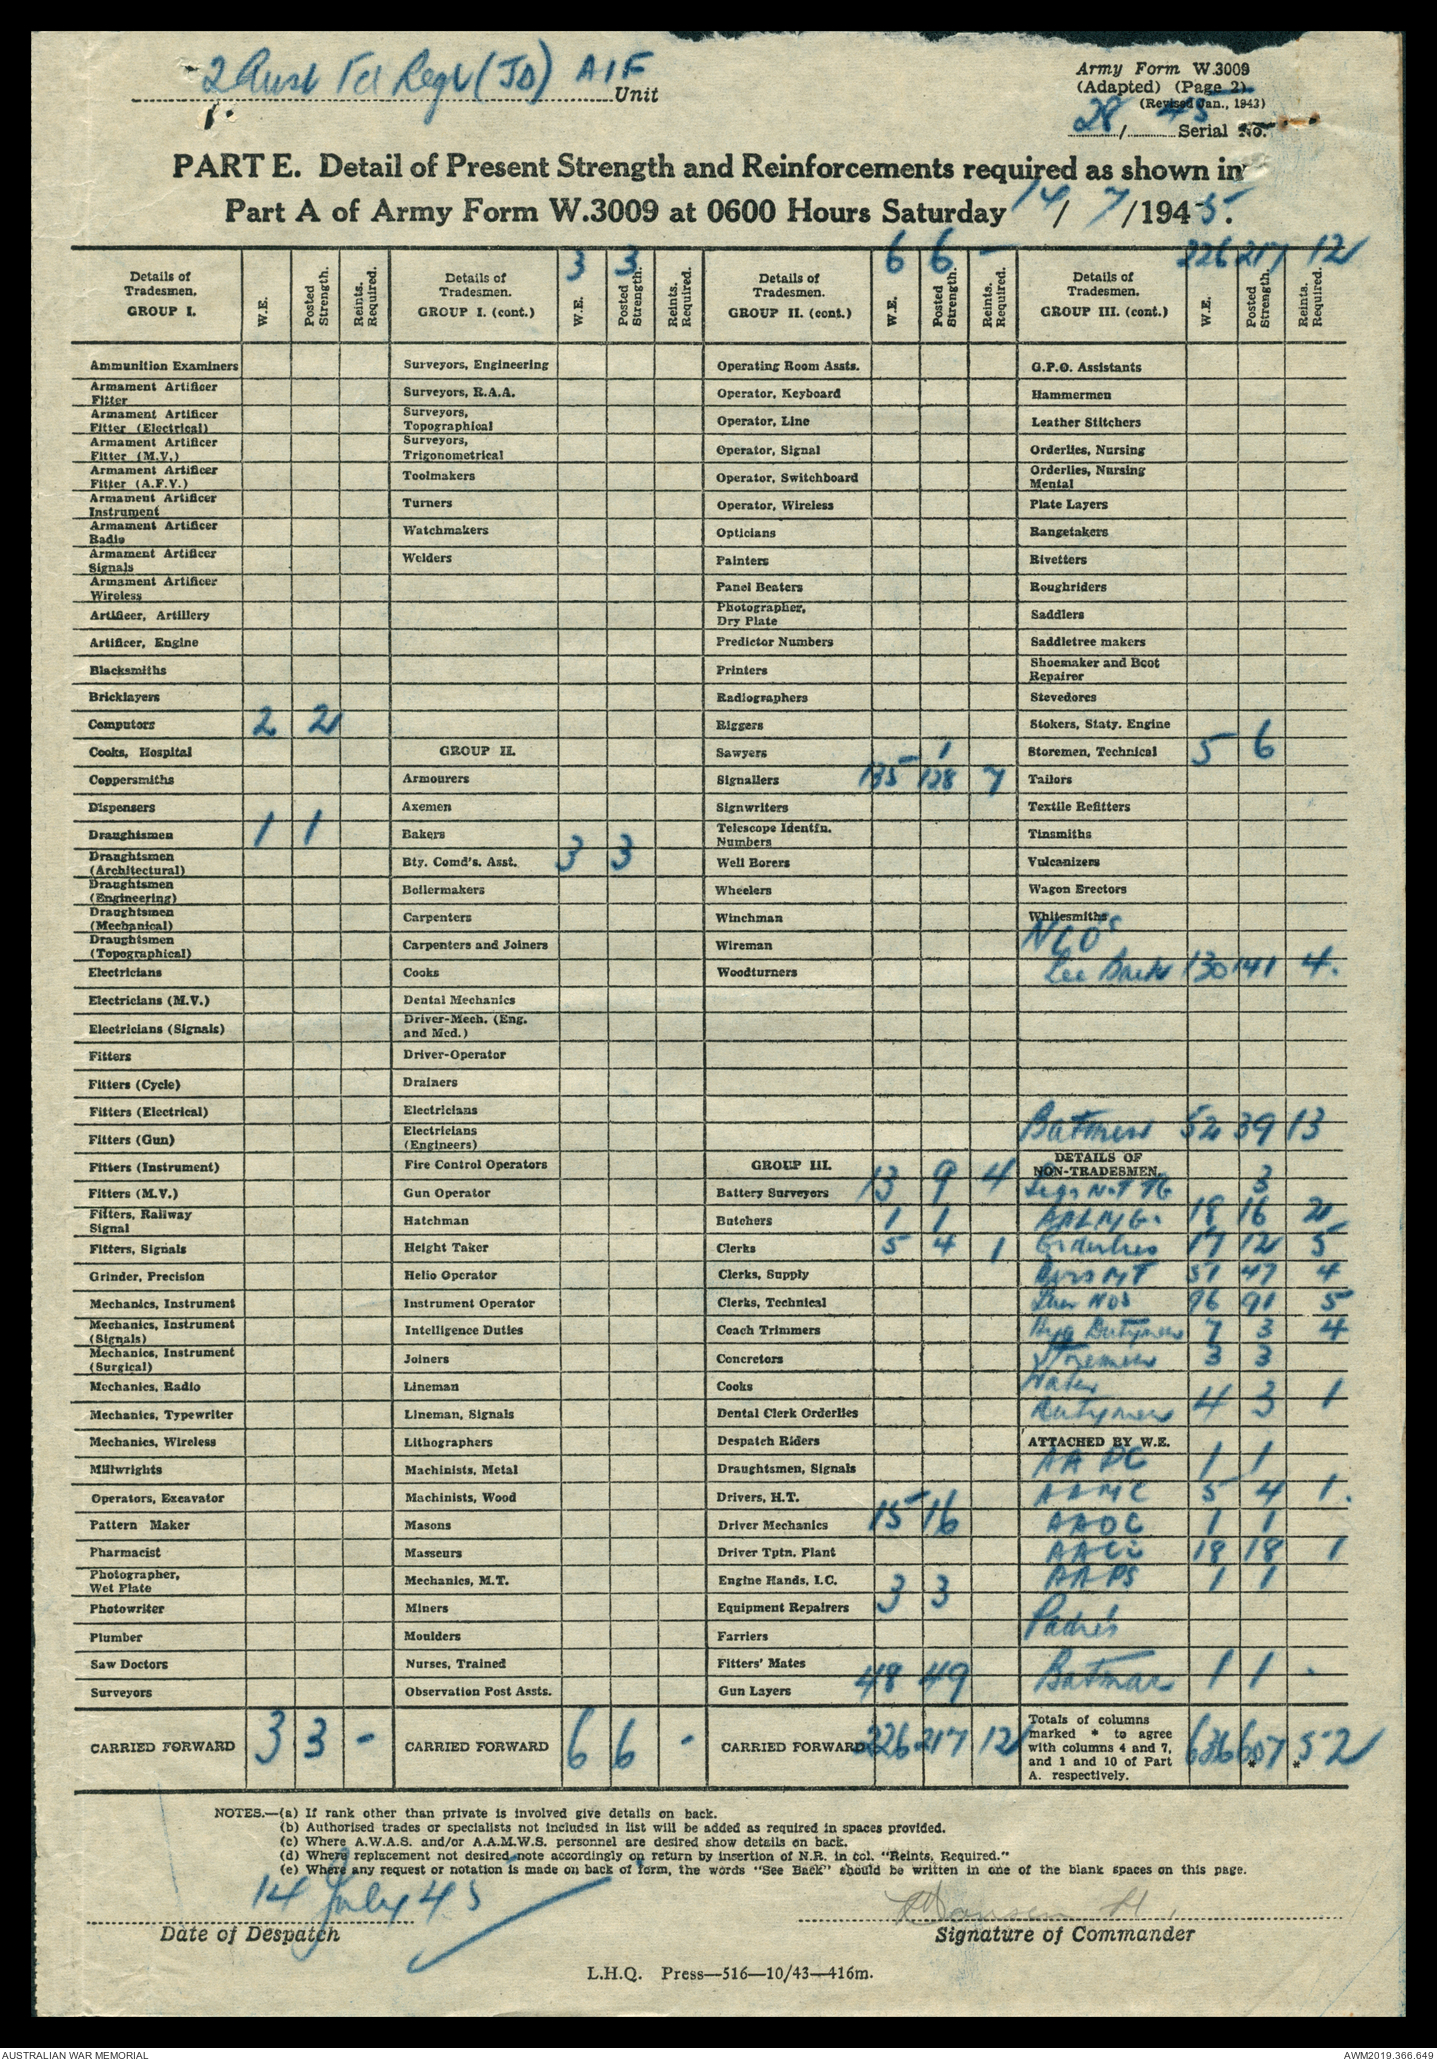 2 Aust Fd Regt (JD) AIF
Unit
Army Form W.3009
(Adapted) (Page 2)
(Revised Jan., 1943)
28 / 45 Serial No.
PART E. Detail of Present Strength and Reinforcements required as shown in
Part A of Army Form W.3009 at 0600 Hours Saturday 14/ 7/1945.
Details of Tradesmen. GROUP I. W.E. Posted Strength. Reints. Required.
Ammunition Examiners
Armament Artificer Fitter
Armament Artificer Fitter (Electrical)
Armament Artificer Fitter (M.V.)
Armament Artificer Fitter (A.F.V.)
Armament Artificer Instrument
Armament Artificer Radio
Armament Artificer Signals
Armament Artificer Wireless
Artificer, Artillery
Artificer, Engine
Blacksmiths
Bricklayers
Computors 2 2
Cooks, Hospital
Coppersmiths
Dispensers
Draughtsmen 1 1
Draughtsmen (Architectural)
Draughtsmen (Engineering)
Draughtsmen (Mechanical)
Draughtsmen (Topographical)
Electricians
Electricians (M.V.)
Electricians (Signals)
Fitters
Fitters (Cycle)
Fitters (Electrical)
Fitters (Gun)
Fitters (Instrument)
Fitters (M.V.)
Fitters, Railway Signal
Fitters, Signals
Grinder, Precision
Mechanics, Instrument
Mechanics, Instrument (Signals)
Mechanics, Instrument (Surgical)
Mechanics, Radio
Mechanics, Typewriter
Mechanics, Wireless
Millwrights
Operators, Excavator
Pattern Maker
Pharmacist
Photographer, Wet Plate
Photowriter
Plumber
Saw Doctors
Surveyors
CARRIED FORWARD 3 3 -
3 3
Details of Tradesmen. GROUP I. (cont.) W.E. Posted Strength. Reints. Required.
Surveyors, Engineering
Surveyors, R.A.A.
Surveyors, Topographical
Surveyors, Trigonometrical
Toolmakers
Turners
Watchmakers
Welders
GROUP II.
Armourers
Axemen
Bakers
Bty. Comd's. Asst. 3 3
Boilermakers
Carpenters
Carpenters and Joiners
Cooks
Dental Mechanics
Driver-Mech. (Eng. and Med.)
Driver-Operator
Drainers
Electricians
Electricians (Engineers)
Fire Control Operators
Gun Operator
Hatchman
Height Taker
Helio Operator
Instrument Operator
Intelligence Duties
Joiners
Lineman
Lineman, Signals
Lithographers
Machinists, Metal
Machinists, Wood
Masons
Masseurs
Mechanics, M.T.
Miners
Moulders
Nurses, Trained
Observation Post Assts.
CARRIED FORWARD 6 6 -
6 6 -
Details of Tradesmen. GROUP II. (cont.) W.E. Posted Strength. Reints. Required.
Operating Room Assts.
Operator, Keyboard
Operator, Line
Operator, Signal
Operator, Switchboard
Operator, Wireless
Opticians
Painters
Panel Beaters
Photographer, Dry Plate
Predictor Numbers
Printers
Radiographers
Riggers
Sawyers 1
Signallers 135 128 7
Signwriters
Telescope Identfn. Numbers
Well Borers
Wheelers
Winchman
Wireman
Woodturners
GROUP III.
Battery Surveyors 13 9 4
Butchers 1 1
Clerks 5 4 1
Clerks, Supply
Clerks, Technical
Coach Trimmers
Concretors
Cooks
Dental Clerk Orderlies
Despatch Riders
Draughtsmen, Signals
Drivers, H.T.
Driver Mechanics 15 16
Driver Tptn. Plant
Engine Hands, I.C.
Equipment Repairers 3 3
Farriers
Fitters' Mates
Gun Layers 48 49
CARRIED FORWARD 226 217 12
226 217 12
Details of Tradesmen. GROUP III. (cont.) W.E. Posted Strength. Reints. Required.
G.P.O. Assistants
Hammermen
Leather Stitchers
Orderlies, Nursing
Orderlies, Nursing Mental
Plate Layers
Rangetakers
Rivetters
Roughriders
Saddlers
Saddletree makers
Shoemaker and Boot Repairer
Stevedores
Stokers, Staty. Engine
Storemen, Technical 5 6
Tailors
Textile Refitters
Tinsmiths
Vulcanizers
Wagon Erectors
Whitesmiths
NCO's
See Back 130 141 4.
Batmen 52 39 13
DETAILS OF NON-TRADESMEN.
Sigs Not TG 3
AALMG. 18 16 2
Orderlies 17 12 5
Dvrs MT 51 47 4
Gun Nos 96 91 5
Hyg Dutymen 7 3 4
Storemen 3 3
Water
Dutymen 4 3 1
ATTACHED BY W.E.
AAPC 1 1
AAMC 5 4 1.
AAOC 1 1
AACC 18 18 1
AAPS 1 1
Padre's
Batman 1 1 .
Totals of columns marked * to agree with columns 4 and 7, and 1 and 10 of Part A. respectively. 636 607 * * 52
NOTES.—(a) If rank other than private is involved give details on back.
(b) Authorised trades or specialists not included in list will be added as required in spaces provided.
(c) Where A.W.A.S. and/or A.A.M.W.S. personnel are desired show details on back.
(d) Where replacement not desired note accordingly on return by insertion of N.R. in col. "Reints. Required."
(e) Where any request or notation is made on back of form, the words "See Back" should be written in one of the blank spaces on this page.
14 July 45
Date of Despatch
Signature of Commander
L.H.Q. Press—516—10/43—416m.
AUSTRALIAN WAR MEMORIAL
AWM2019.366.649